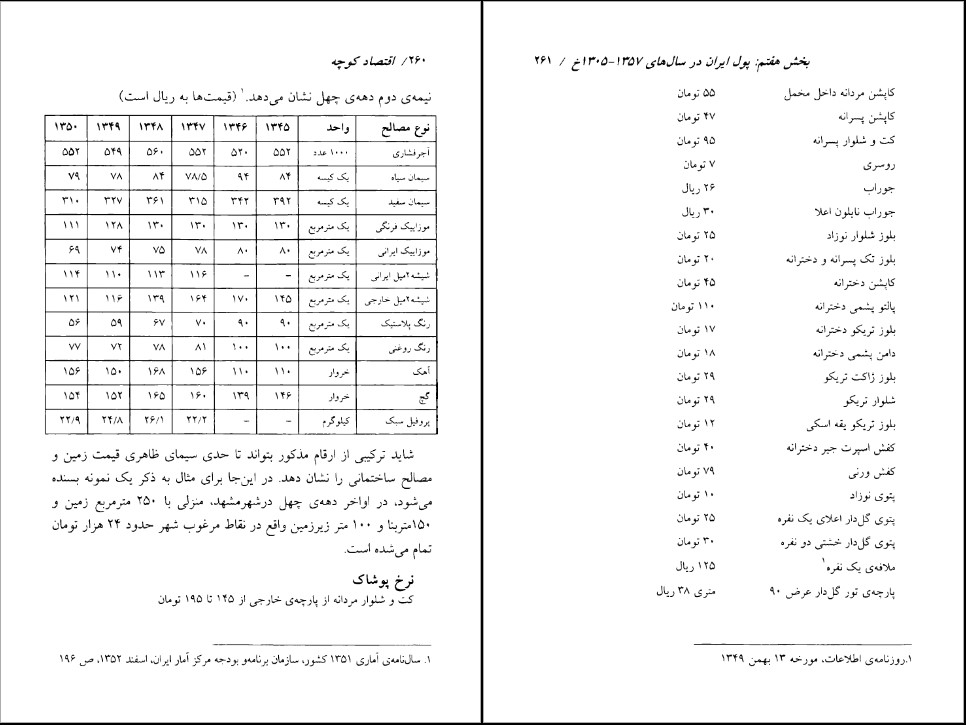 ۲۶۰/ اقتصاد کوچه
نیمه‌ی دوم دهه‌ی چهل نشان می‌دهد.۱ (قیمت‌ها به ریال است)
نوع مصالح واحد ۱۳۴۵ ۱۳۴۶ ۱۳۴۷ ۱۳۴۸ ۱۳۴۹ ۱۳۵۰
آجرفشاری ۱۰۰۰ عدد ۵۵۲ ۵۲۰ ۵۵۲ ۵۶۰ ۵۴۹ ۵۵۲
سیمان سیاه یک کیسه ۸۴ ۹۴ ۷۸/۵ ۸۴ ۷۸ ۷۹
سیمان سفید یک کیسه ۳۹۲ ۳۴۲ ۳۱۵ ۳۶۱ ۳۲۷ ۳۱۰
موزاییک فرنگی یک مترمربع ۱۳۰ ۱۳۰ ۱۳۰ ۱۳۰ ۱۲۸ ۱۱۱
موزاییک ایرانی یک مترمربع ۸۰ ۸۰ ۷۸ ۷۵ ۷۴ ۶۹
شیشه۲میل ایرانی یک مترمربع - - ۱۱۶ ۱۱۳ ۱۱۰ ۱۱۴
شیشه۲میل خارجی یک مترمربع ۱۴۵ ۱۷۰ ۱۶۴ ۱۳۹ ۱۱۶ ۱۲۱
رنگ پلاستیک یک مترمربع ۹۰ ۹۰ ۷۰ ۶۷ ۵۹ ۵۶
رنگ روغنی یک مترمربع ۱۰۰ ۱۰۰ ۸۱ ۷۸ ۷۲ ۷۷
آهک خروار ۱۱۰ ۱۱۰ ۱۵۶ ۱۶۸ ۱۵۰ ۱۵۶
گچ خروار ۱۴۶ ۱۳۹ ۱۶۰ ۱۶۵ ۱۵۲ ۱۵۴
پروفیل سبک کیلوگرم - - ۲۲/۲ ۲۶/۱ ۲۴/۸ ۲۲/۹
شاید ترکیبی از ارقام مذکور بتواند تا حدی سیمای ظاهری قیمت زمین و
مصالح ساختمانی را نشان دهد. در این‌جا برای مثال به ذکر یک نمونه بسنده
می‌شود، در اواخر دهه‌ی چهل درشهرمشهد، منزلی با ۲۵۰ مترمربع زمین و
۱۵۰متربنا و ۱۰۰ متر زیرزمین واقع در نقاط مرغوب شهر حدود ۲۴ هزار تومان
تمام می‌شده است.
نرخ پوشاک
کت و شلوار مردانه از پارچه‌ی خارجی از ۱۴۵ تا ۱۹۵ تومان
۱. سال‌نامه‌ی آماری ۱۳۵۱ کشور، سازمان برنامه‌و بودجه مرکز آمار ایران، اسفند ۱۳۵۲، ص ۱۹۶
بخش هفتم: پول ایران در سال‌های ۱۳۵۷-۱۳۰۵خ / ۲۶۱
کاپشن مردانه داخل مخمل ۵۵ تومان
کاپشن پسرانه ۴۷ تومان
کت و شلوار پسرانه ۹۵ تومان
روسری ۷ تومان
جوراب ۲۶ ریال
جوراب نایلون اعلا ۳۰ ریال
بلوز شلوار نوزاد ۲۵ تومان
بلوز تک پسرانه و دخترانه ۲۰ تومان
کاپشن دخترانه ۴۵ تومان
پالتو پشمی دخترانه ۱۱۰ تومان
بلوز تریکو دخترانه ۱۷ تومان
دامن پشمی دخترانه ۱۸ تومان
بلوز ژاکت تریکو ۲۹ تومان
شلوار تریکو ۲۹ تومان
بلوز تریکو یقه اسکی ۱۲ تومان
کفش اسپرت جیر دخترانه ۴۰ تومان
کفش ورنی ۷۹ تومان
پتوی نوزاد ۱۰ تومان
پتوی گل‌دار اعلای یک نفره ۲۵ تومان
پتوی گل‌دار خشتی دو نفره ۳۰ تومان
ملافه‌ی یک نفره۱ ۱۲۵ ریال
پارچه‌ی تور گل‌دار عرض ۹۰ متری ۳۸ ریال
۱.روزنامه‌ی اطلاعات، مورخه ۱۳ بهمن ۱۳۴۹